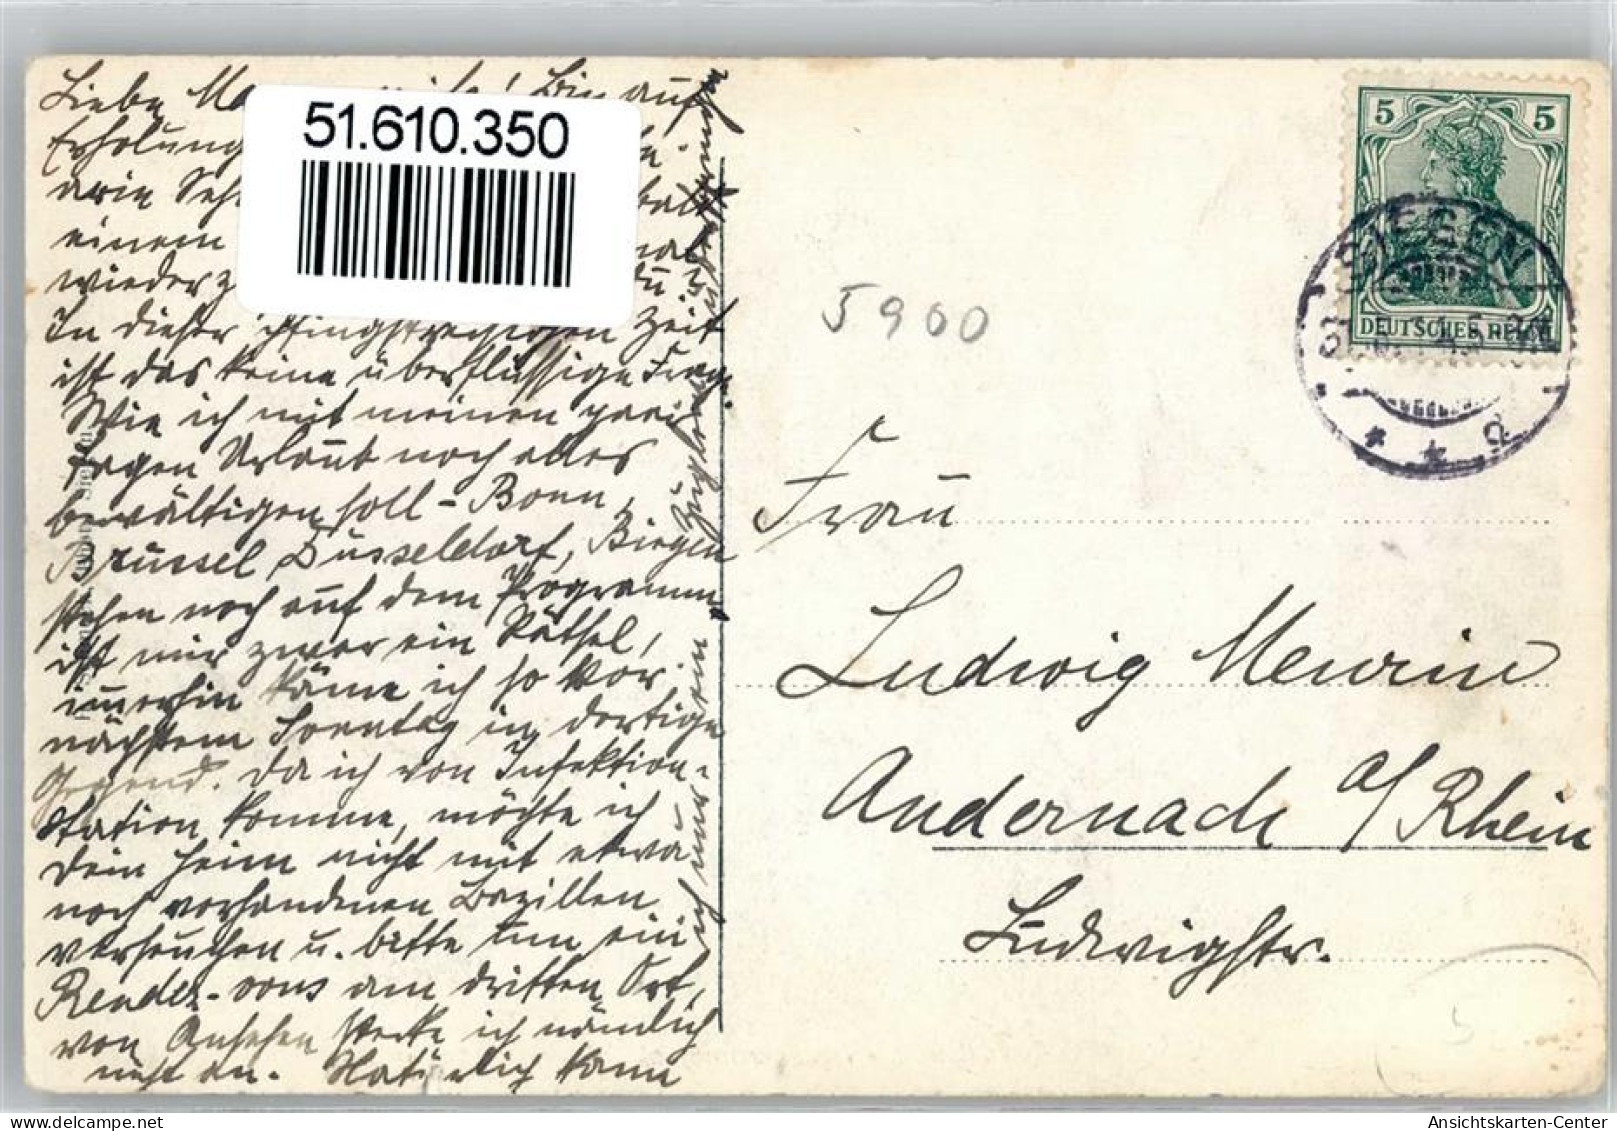 Liebe
Bin auf
Erholung
einem
wieder
In dieser pfingstreichsten Zeit
ist das keine überflüssige Frage.
Wie ich mit meinen zwei
tagen Urlaub noch alles
bewältigen soll - Bonn,
Brüssel Düsseldorf, Bingen
stehen noch auf dem Programm,
ist mir zwar ein Rätsel,
immerhin käme ich so vor
nächstem Sonntag in dortige
Gegend. Da ich von Infektion-
station komme, möchte ich
Dein Heim nicht mit etwa
noch vorhandenen Bazillen
verseuchen u. bitte um ein
Rendez-vous am dritten Ort,
von Ansehen stecke ich nämlich
nicht an. Natürlich kann
ich nur
51.610.350
5 5
DEUTSCHES REICH
SIEGEN
5900
Frau
Ludwig Meurin
Andernach a/Rhein
Ludwigstr.
5
Ansichtskarten-Center